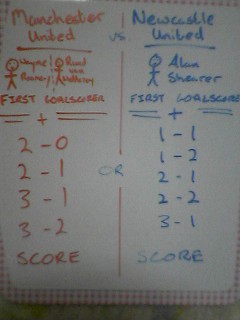 Manchester
United
Wayne
Rooney
Ruud
van
FIRST GOALSCORER
+
2 - 0
2 - 1
3 - 1
3 - 2
SCORE
vs
OR
Newcastle
United
Alan
Shearer
FIRST GOALSCORER
+
1 - 1
1 - 2
2 - 1
2 - 2
3 - 1
SCORE